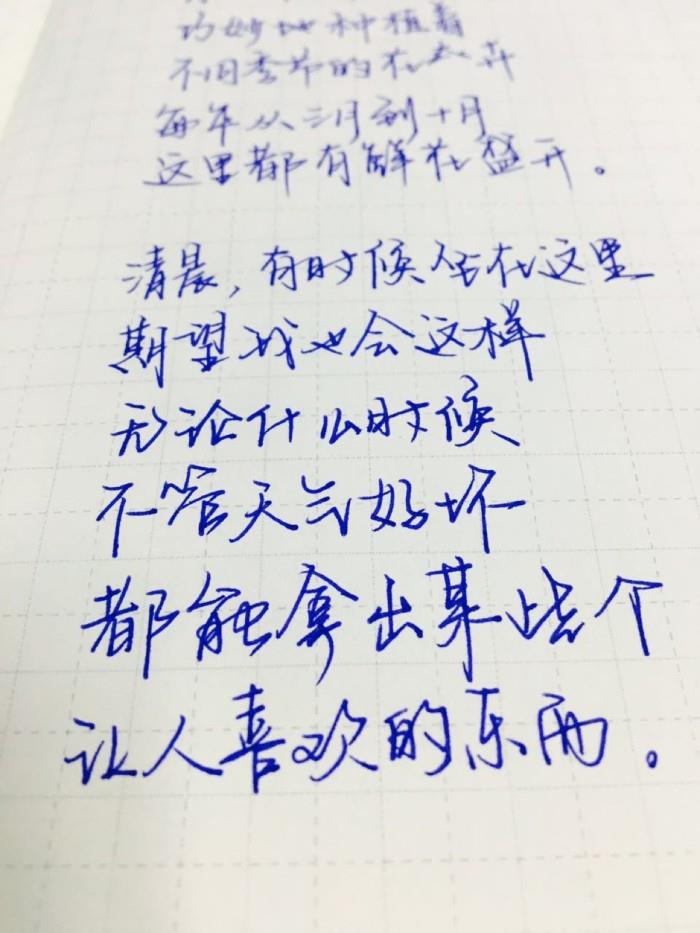 巧妙地种植着
不同季节的花卉
每年从三月到十月
这里都有鲜花盛开。
清晨，有时候坐在这里
期望我也会这样
无论什么时候
不管天气好坏
都能拿出某些个
让人喜欢的东西。